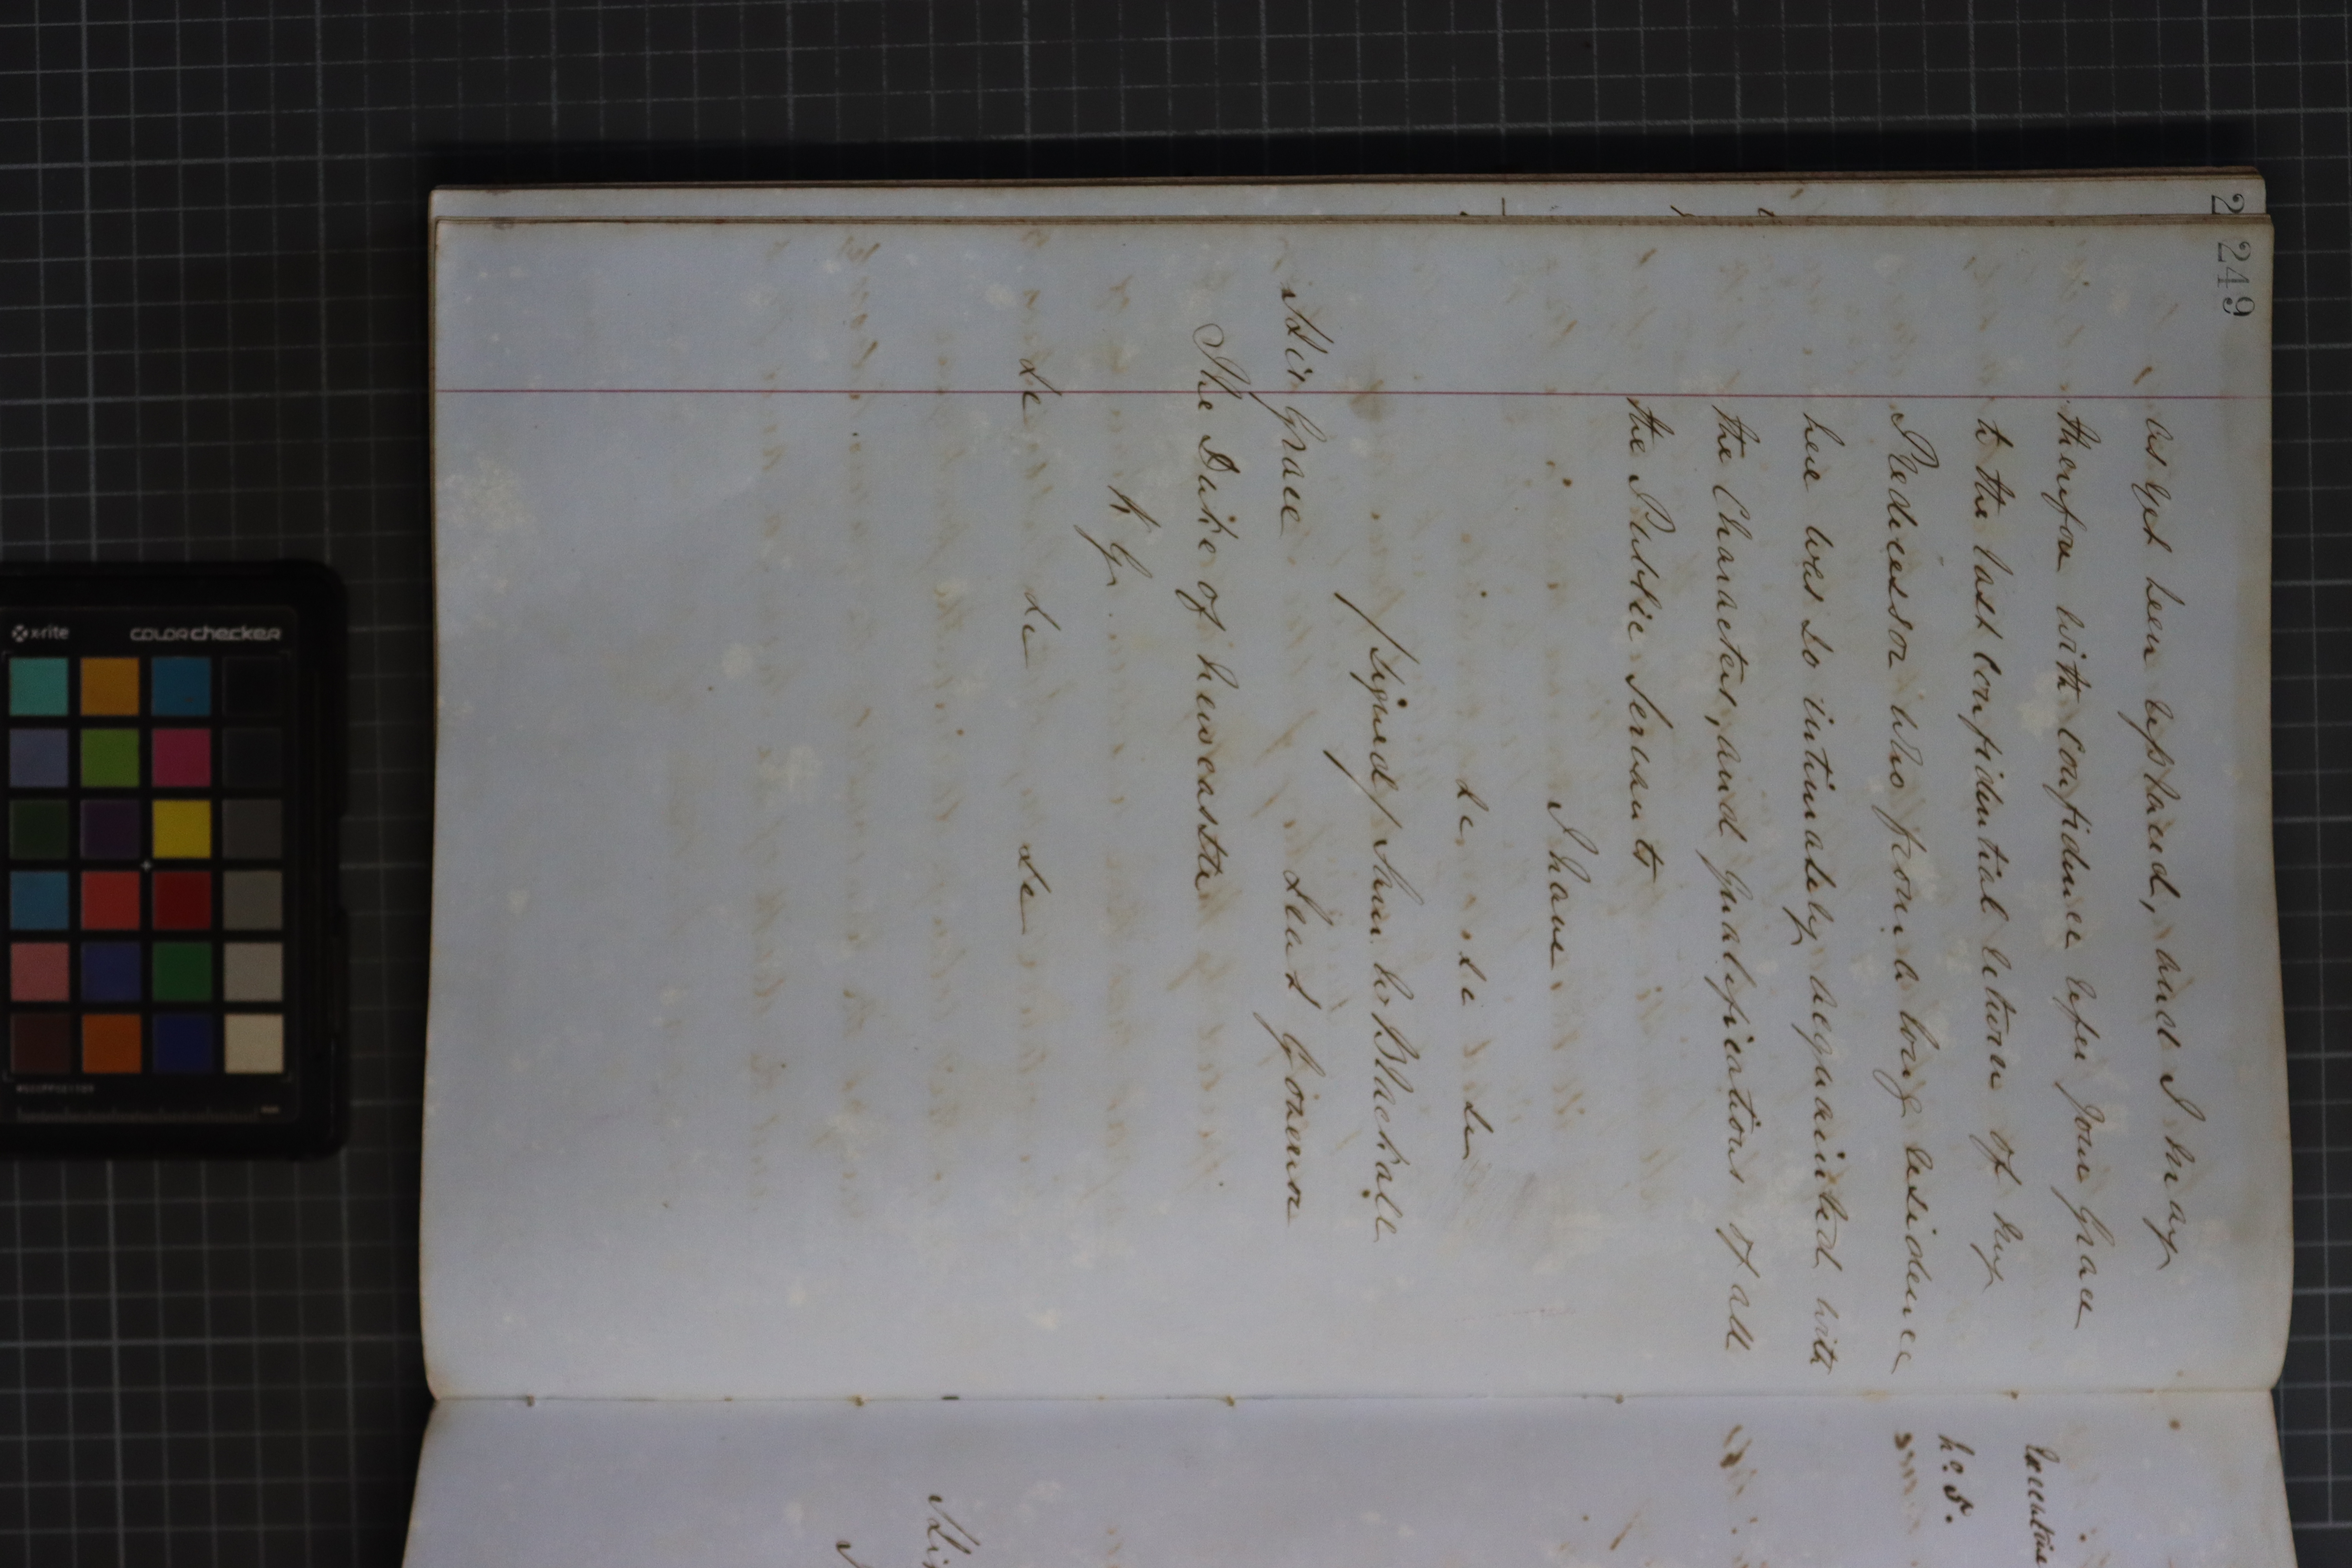 249
as yet been replaced, and I may
therefore with confidence refer your Grace
to the last confidential return of my
Predecessor who from a long residence
here was so intimately acquainted with
the Character, and qualifications of all
the Public Servants
I have
&c &c &c
/Signed/ Sam. W. Blackall
His Grace Lieut Governor
The Duke of Newcastle
K G.
&c &c &c
Executive
No. 5.
x-rite
COLORchecker